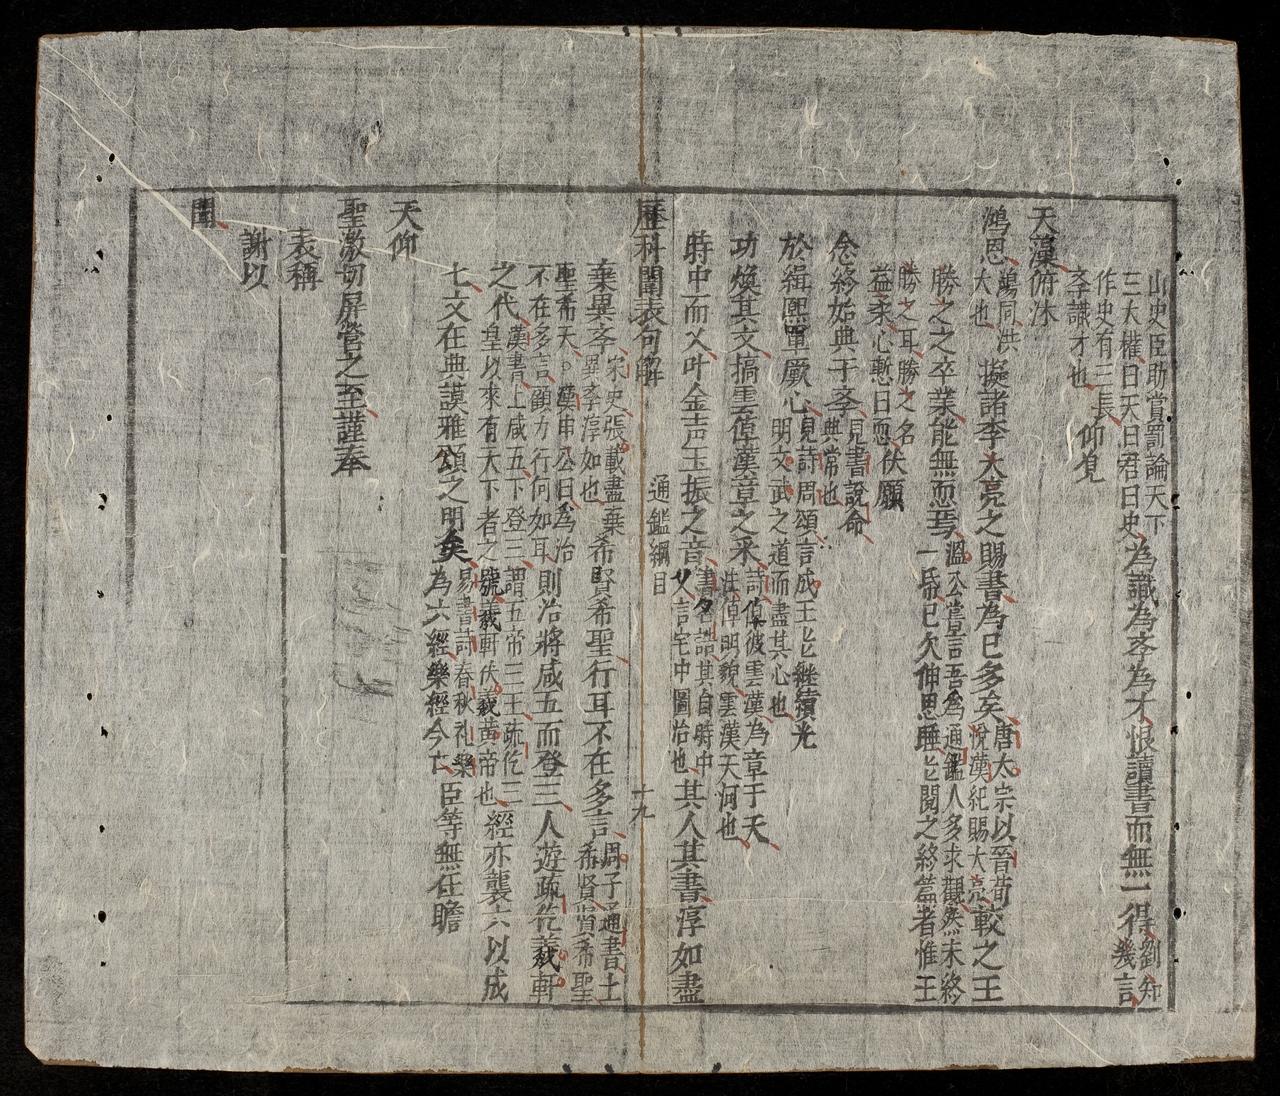 山史臣助賞罰論天下
三大權曰天曰君曰史為識為斈為才恨讀書而無一得劉知
幾言
作史有三長
斈識才也仰見
天藻俯沐
鴻恩鴻同洪
大也擬諸李大亮之賜書為已多矣唐太宗以晉荀
悅漢紀賜大亮較之王
勝之之卒業能無恧焉溫公嘗言吾為通鑑人多求觀然未終
一帋已欠伸思睡匕閱之終篇者惟王
勝之耳勝之名
益柔心慙曰恧伏願
念終始典于斈見書說命
典常也
於緝熙單厥心見詩周頌言成王匕継續光
明文武之道而盡其心也
功煥其文摛雲倬漢章之釆詩倬彼雲漢為章于天
注倬明貌雲漢天河也
時中而乂叶金声玉振之音書名誥其自時中
乂言宅中圖治也其人其書淳如盡
歷科闈表句解 通鑑綱目 十九
棄異斈宋史張載盡棄
異斈淳如也希賢希聖行耳不在多言周子通書士
希賢賢希聖
聖希天漢申公曰為治
不在多言顧力行何如耳則治將咸五而登三人遊疏仡羲軒
之代漢書上咸五下登三謂五帝三王疏仡三
皇以來有天下者之號羲軒伏羲黃帝也經亦襲六以成
七文在典謨雅頌之明矣易書詩春秋礼樂
為六經樂經今亡臣等無任瞻
天仰
聖激切屏營之至謹奉
表稱
謝以
聞